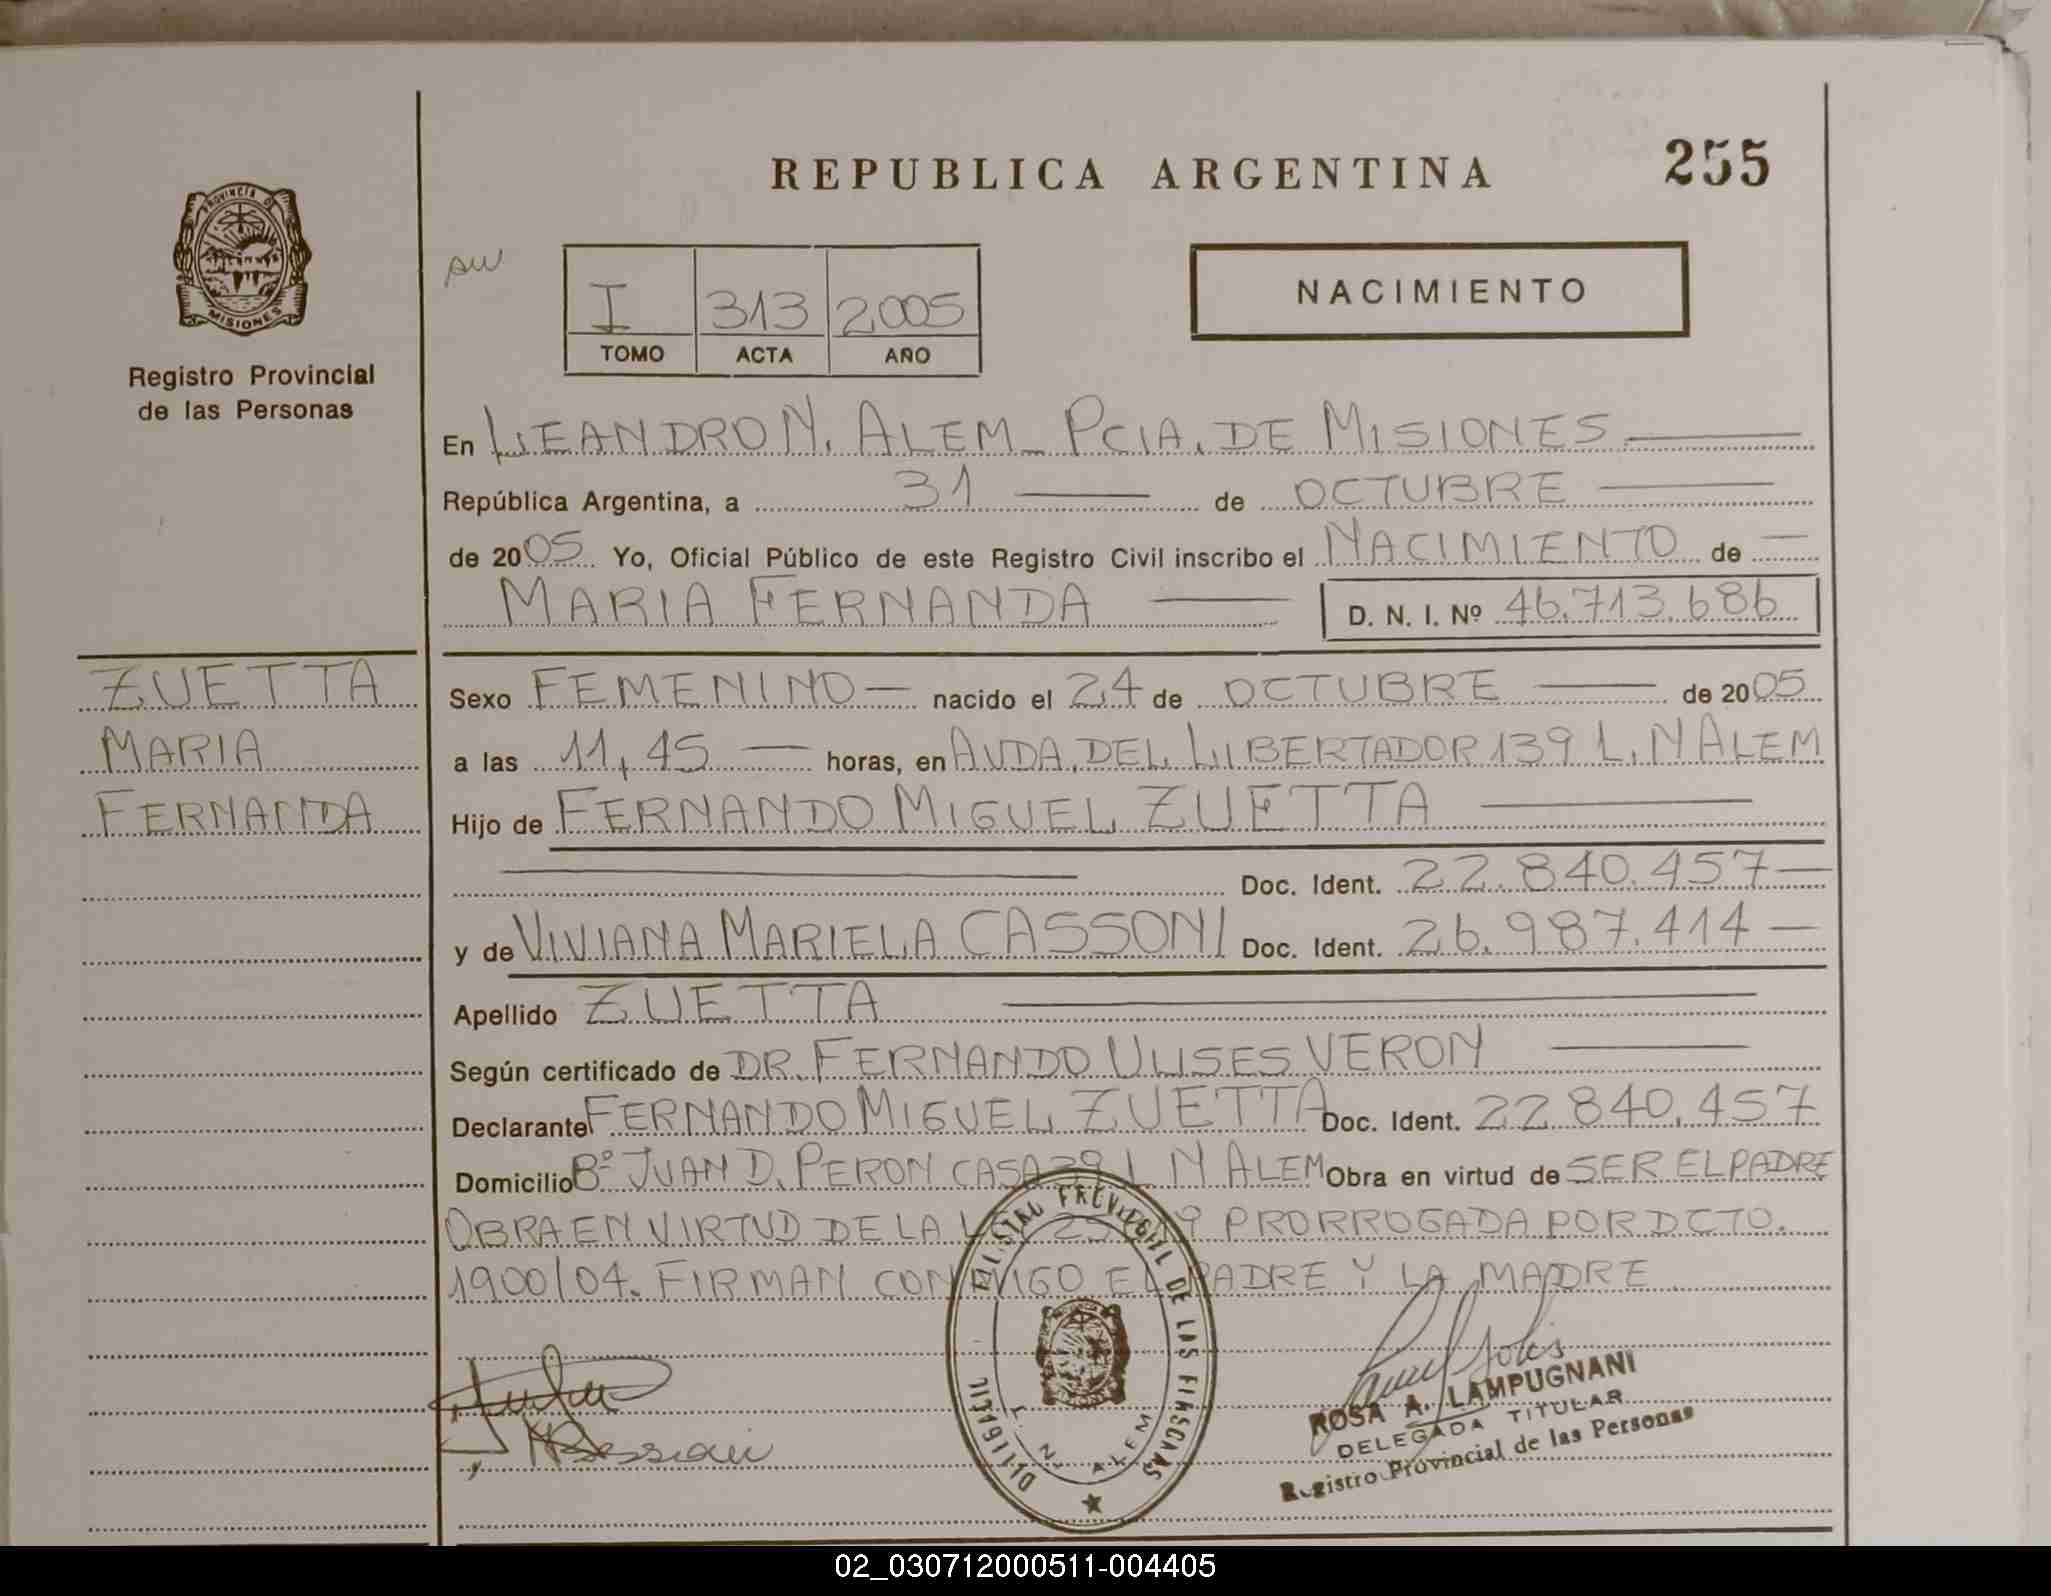 REPUBLICA ARGENTINA
255
PROVINCIA DE
MISIONES
Registro Provincial
de las Personas
I 313 2005
TOMO ACTA AÑO
NACIMIENTO
En LEANDRO N. ALEM_ PCIA. DE MISIONES
República Argentina, a 31 de OCTUBRE
de 2005 Yo, Oficial Público de este Registro Civil inscribo el NACIMIENTO de
MARIA FERNANDA D. N. I. Nº 46.713.686
ZUETTA
MARIA
FERNANDA
Sexo FEMENINO nacido el 24 de OCTUBRE de 2005
a las 11,45 horas, en AVDA. DEL LIBERTADOR 139 L. N ALEM
Hijo de FERNANDO MIGUEL ZUETTA
Doc. Ident. 22.840.457
y de VIVIANA MARIELA CASSONI Doc. Ident. 26.987.414
Apellido ZUETTA
Según certificado de DR. FERNANDO ULISES VERON
Declarante FERNANDO MIGUEL ZUETTA Doc. Ident. 22.840.457
Domicilio Bº JUAN D. PERON CASA 29 L N ALEM Obra en virtud de SER EL PADRE
OBRA EN VIRTUD DE LA PRORROGADA POR DCTO.
1900/04. FIRMAN CONMIGO EL PADRE Y LA MADRE
L. N. ALEM
ROSA A. LAMPUGNANI
DELEGADA TITULAR
Registro Provincial de las Personas
02_030712000511-004405